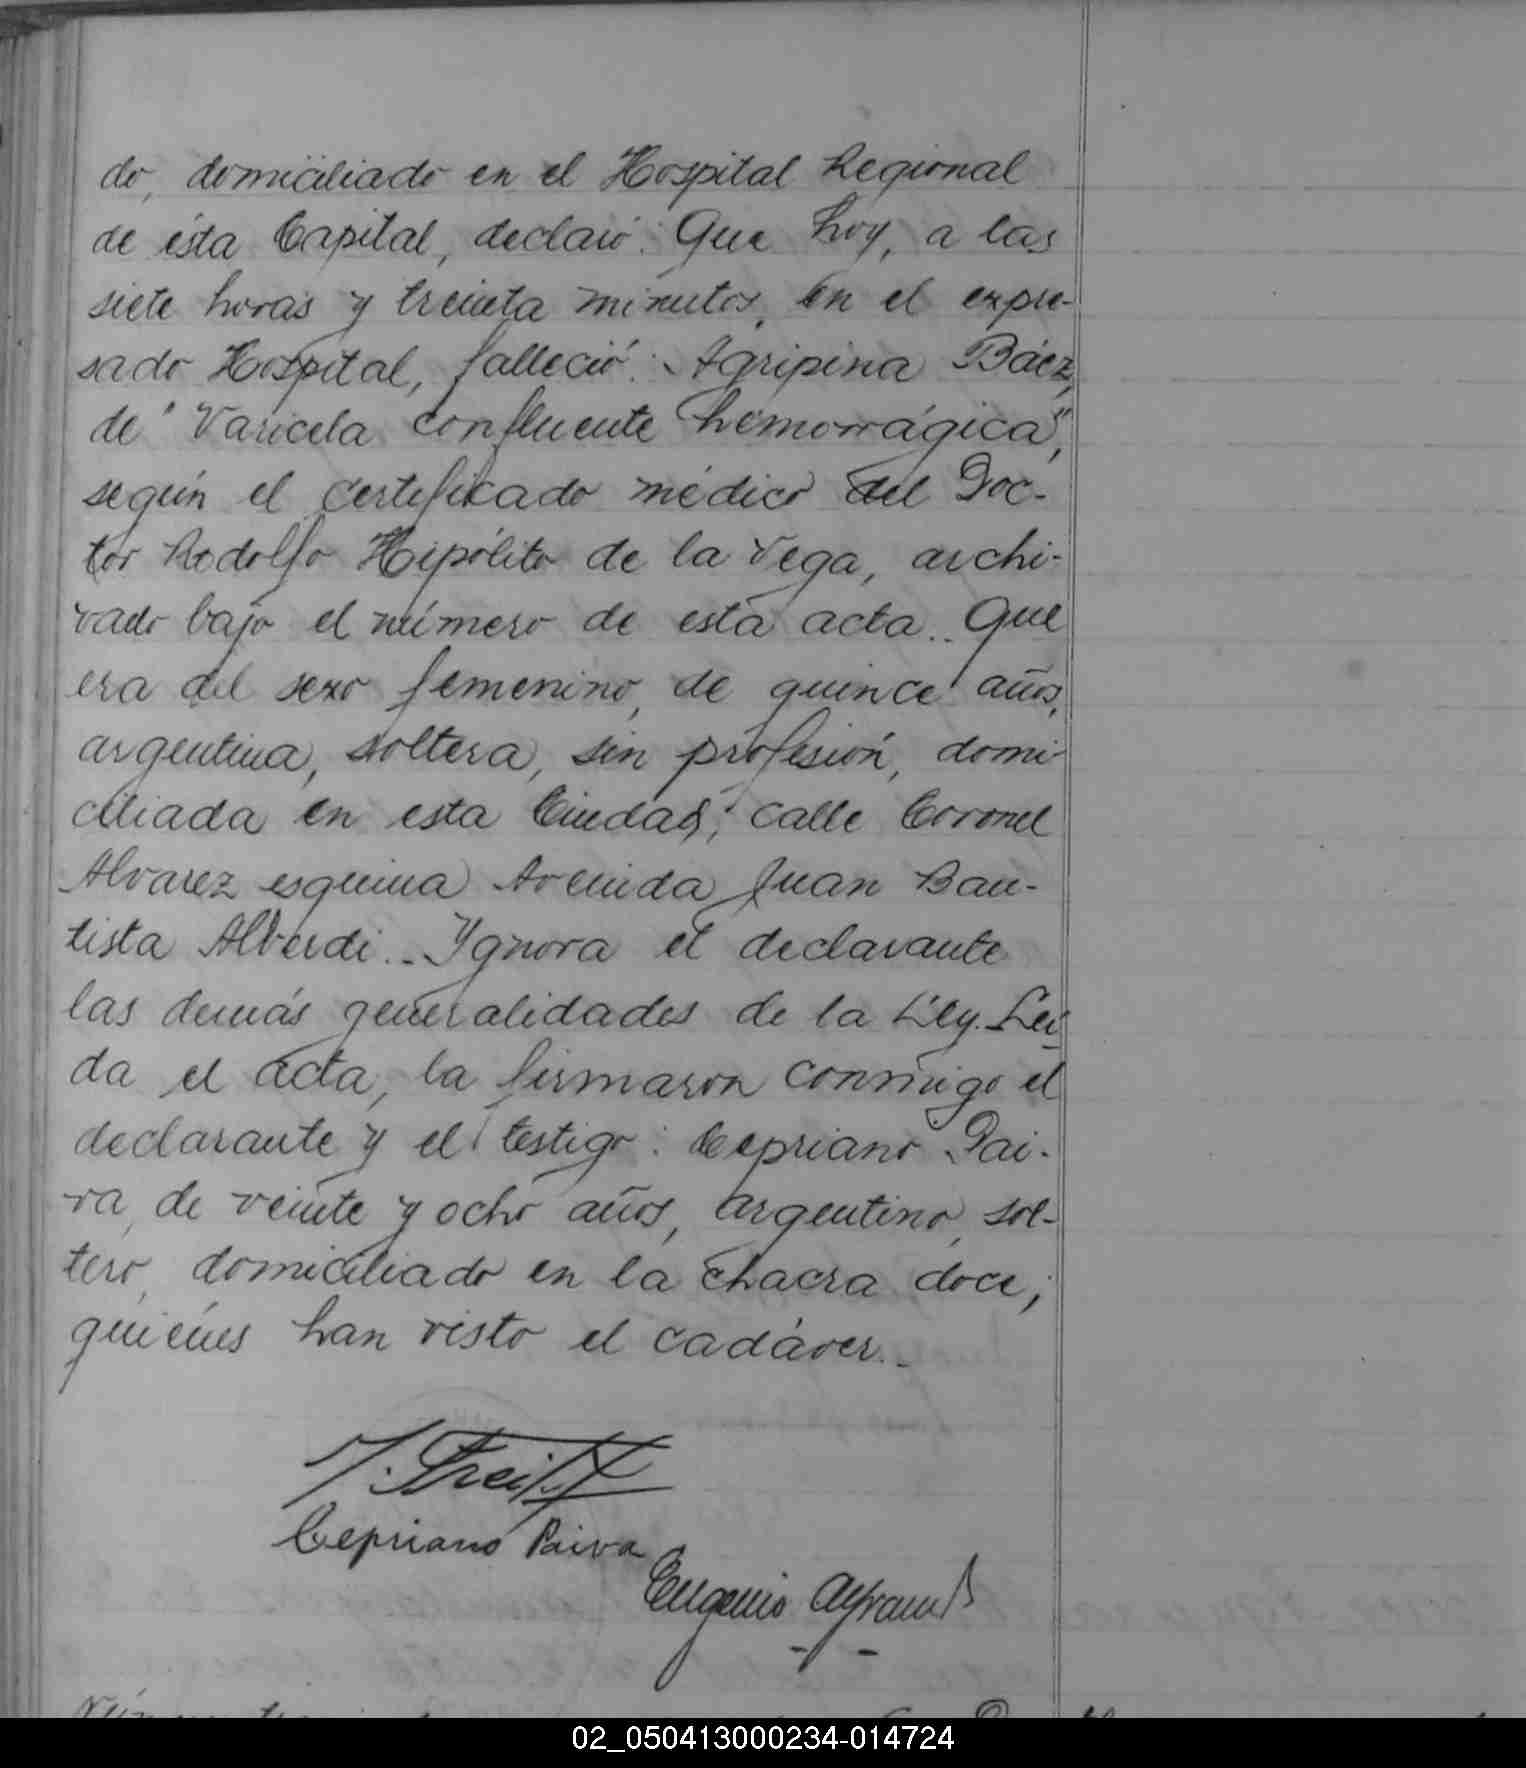 do, domiciliado en el Hospital Regional
de ésta Capital, declaró: Que hoy, a las
siete horas y treinta minutos, en el expre-
sado Hospital, falleció: Agripina Báez,
de "Varicela confluente hemorrágica",
según el certificado médico del Doc-
tor Rodolfo Hipólito de la Vega, archi-
vado bajo el número de esta acta.. Que
era del sexo femenino, de quince años,
argentina, soltera, sin profesión, domi-
ciliada en esta Ciudad, calle Coronel
Alvarez esquina Avenida Juan Bau-
tista Alberdi.. Ygnora el declarante
las demás generalidades de la Ley. Leí-
da el acta, la firmaron conmigo el
declarante y el testigo: Cepriano Pai-
va, de veinte y ocho años, argentino, sol-
tero, domiciliado en la chacra doce;
quiénes han visto el cadáver..
Cepriano Paiva
Eugenio
02_050413000234-014724